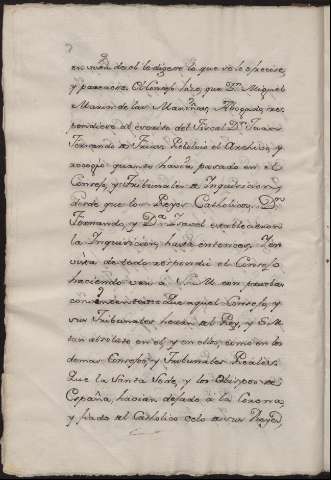 en vista de el le dijese lo que se le ofreciese,
y pareciere. El Consejo hizo, que Dn. Miguel
Marin de las Marinas, Abogado, res-
pondiere al escrito del Fiscal Dn. Juan
Fernando de Frias. Revolvió el Archivo, y
recogio quanto havia pasado en el
Consejo, y Tribunales de Inquisicion
desde que los Reyes Catholicos, Dn.
Fernando, y Da. Isavel establecieron
la Inquisicion, hasta entonces. Y en
vista de todo respondio el Consejo
haciendo ver à S. M. con pruebas
convincentes: Que aquel Consejo, y
sus Tribunales heran del Rey, y S. M.
tan absoluto en el, y en ellos, como en los
demas Consejos, y Tribunales Reales:
Que la Santa Sede, y los Obispos de
España, havian dejado à la Corona,
y fiado al Catholico celo de sus Reyes